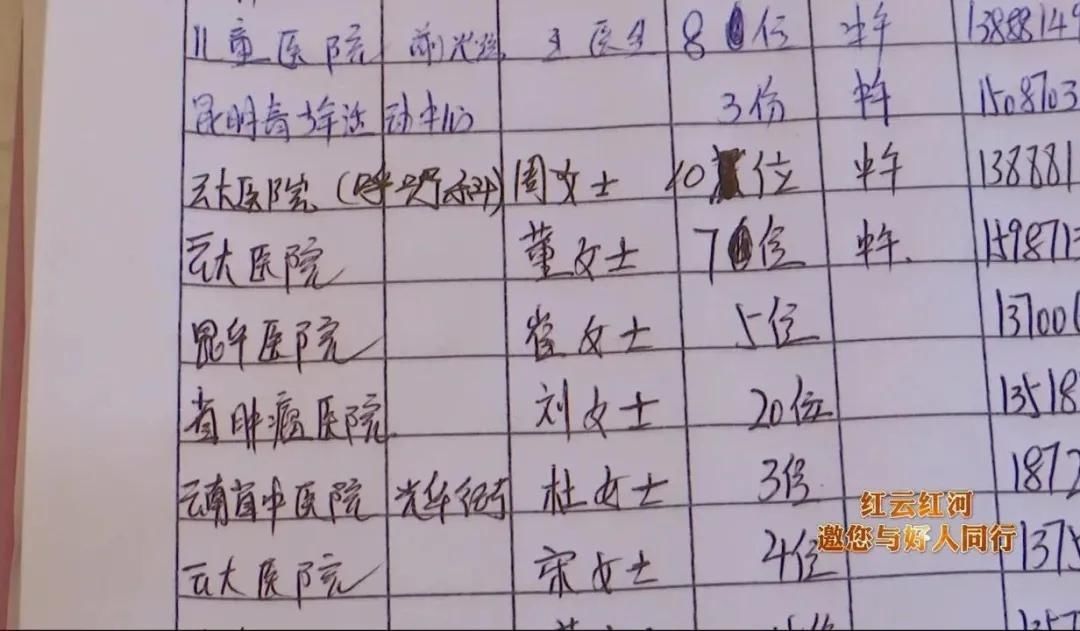 儿童医院 前兴路 王医生 8 位 中午 13888149
昆明青少年活动中心 3份 中午 1508703
云大医院(呼吸内科) 周女士 10 位 中午 138881
云大医院 董女士 7 位 中午. 159871
昆华医院 崔女士 5位 13700
省肿瘤医院 刘女士 20位 13518
云南省中医院 光华街 杜女士 3份 1872
云大医院 宋女士 4位 1375
红云红河
邀您与好人同行